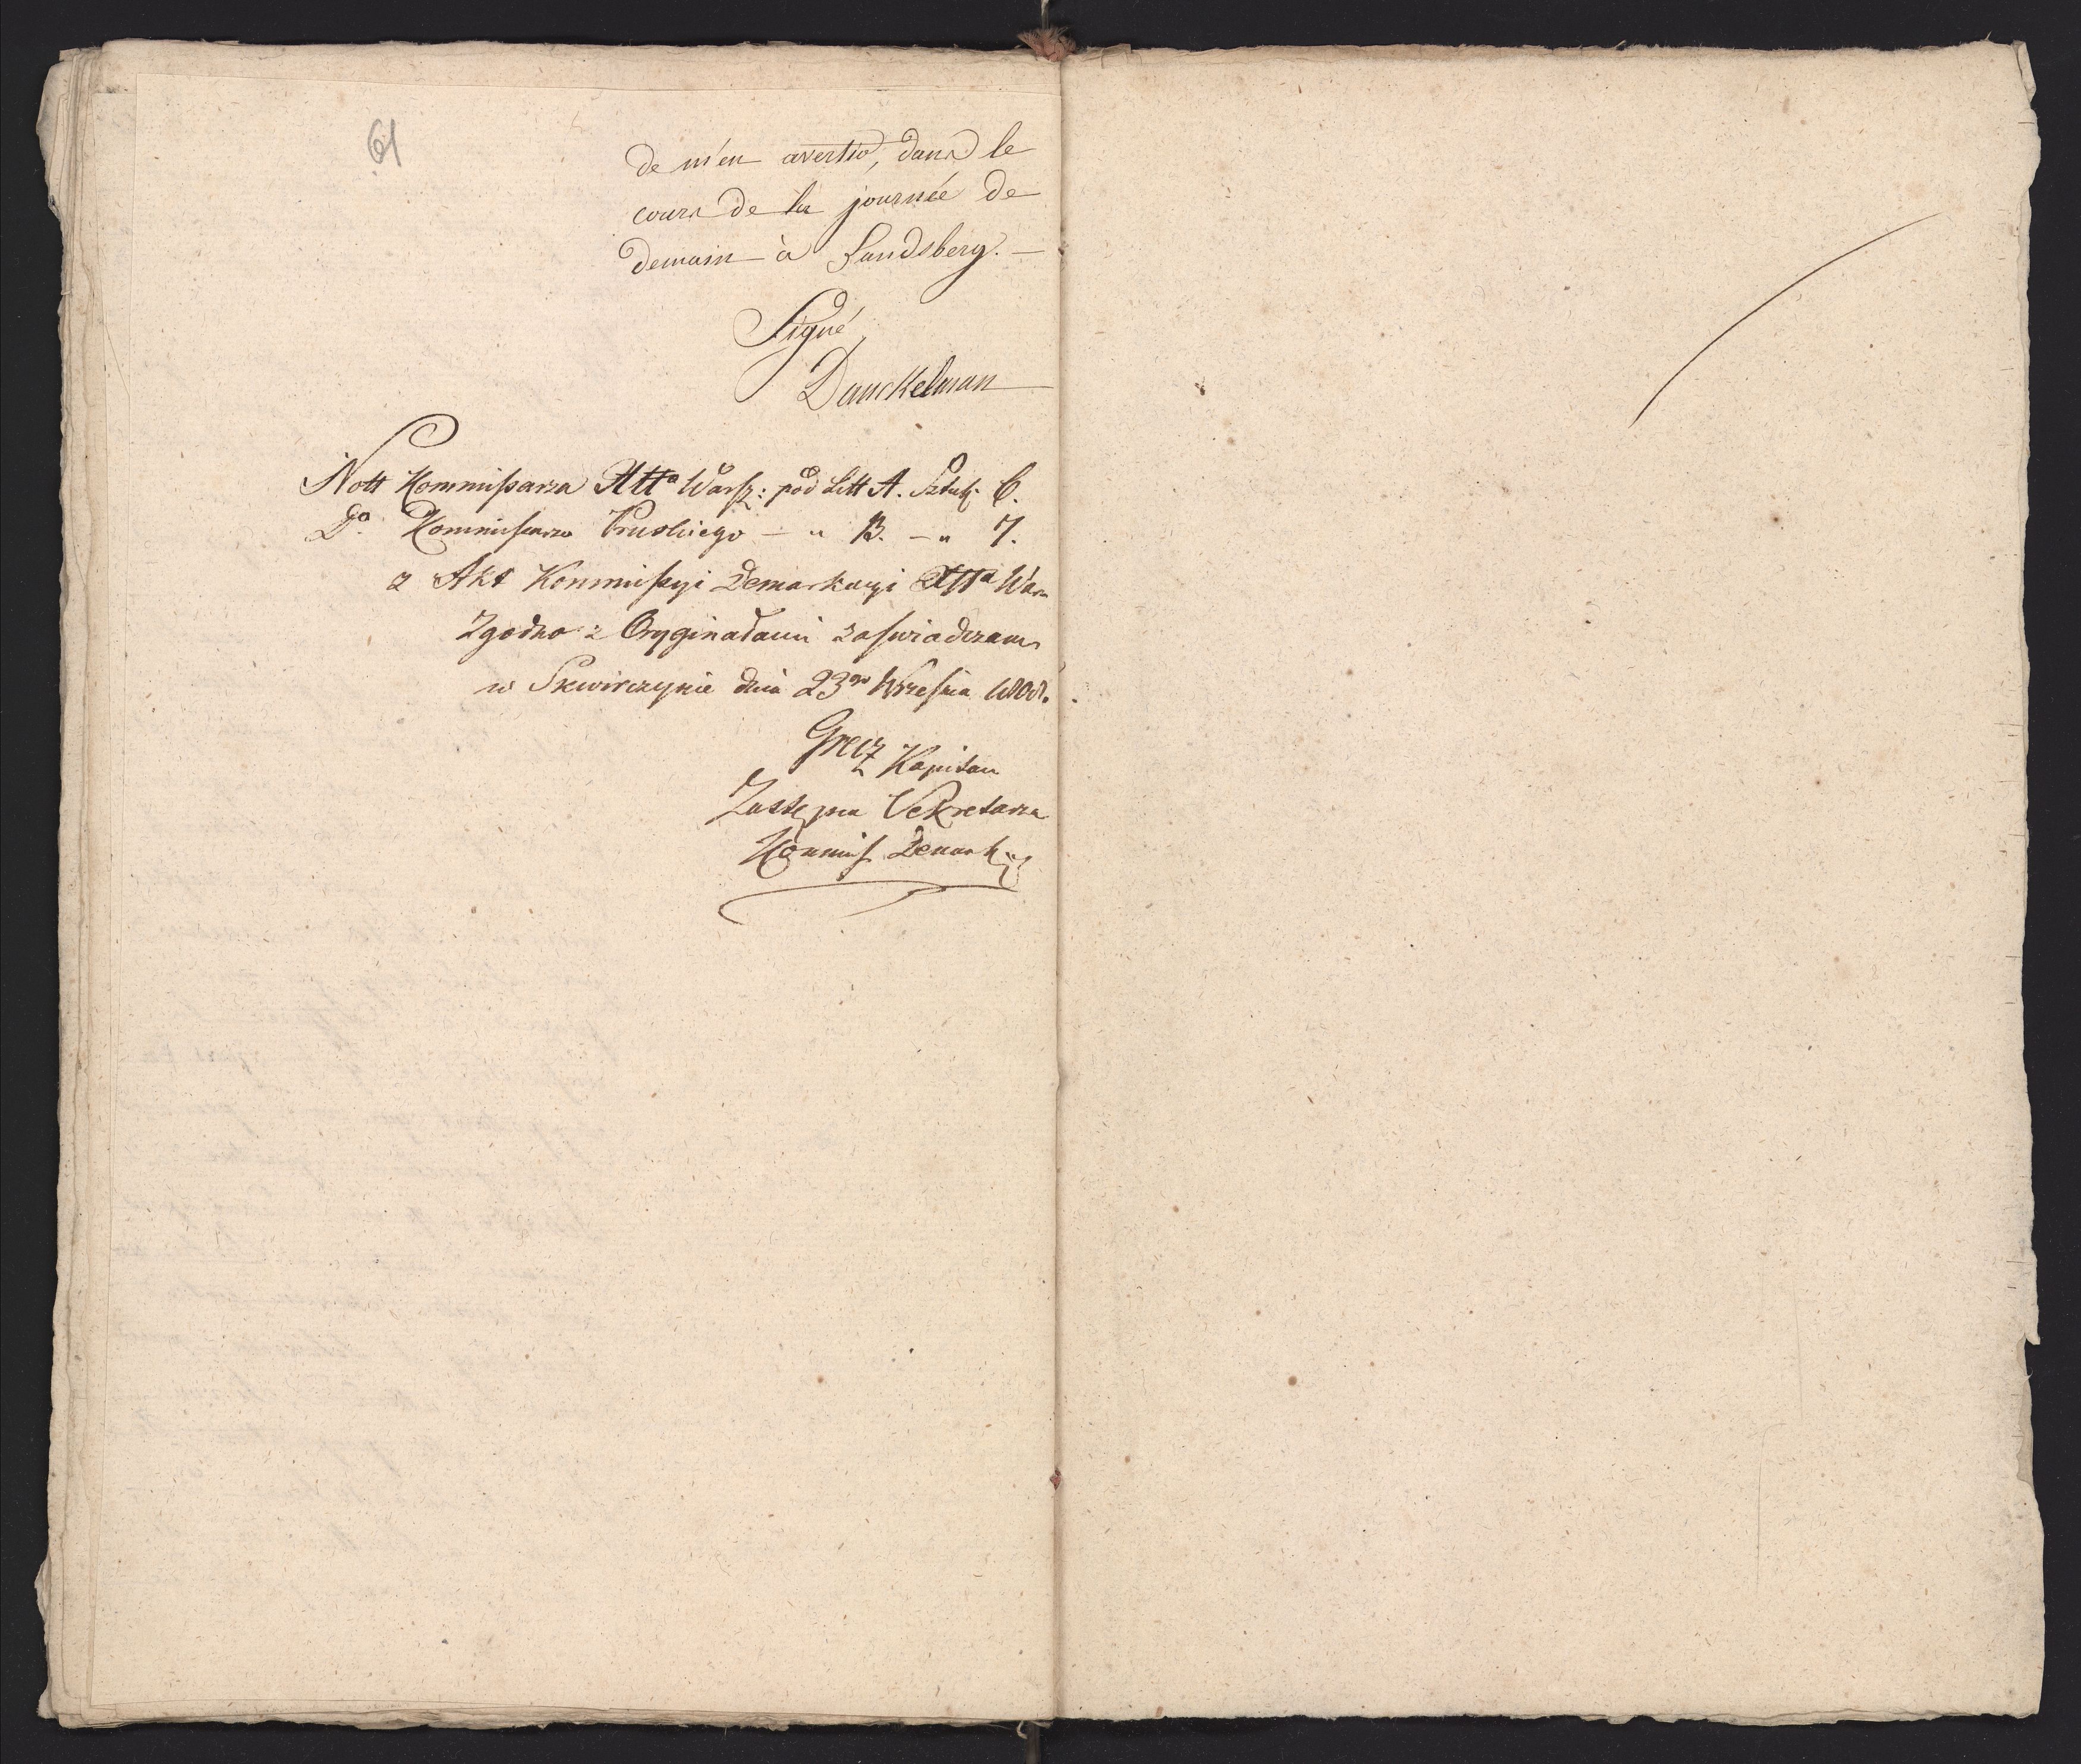 61
de m'en avertir, dans le
cours de la journée de
demain à Landsberg. —
Signé
Danckelman
Nott Kommissarza Xttª Warsz: pod Litt A. Sztuk: 6.
Dº Kommissarza Pruskiego — " B. — " 7.
z Akt Kommissyi Demarkacyi Xttª Warsz
Zgodno z Oryginałami zaswiadczam
w Skwirczynie dnia 23go Września 1808.
Kapitan
Zastępca Sekretarza
Kommiss Demark: